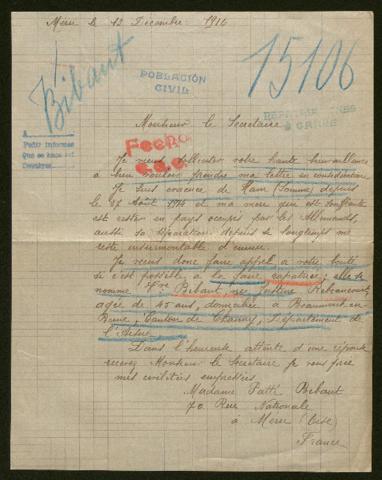 Méru le 12 Décembre 1916
Bibaut
POBLACIÓN
CIVIL
15106
Monsieur le Secrétaire
Fecha
Je viens solliciter votre haute bienveillance
à bien vouloir prendre ma lettre en considération
Je suis évacuée de Ham (Somme) depuis
le 27 Août 1914 et ma mère qui est souffrante
est restée en pays occupés par les Allemands,
aussi sa séparation depuis si longtemps me
reste insurmontable d'ennui.
Je viens donc faire appel à votre bonté
si c'est possible à la faire rapatrier; elle se
nomme Mme Bibaut née Justine
âgée de 45 ans, domiciliée à Beaumont en
Beine, Canton de Chauny, département de
l'Aisne.
Dans l'heureuse attente d'une réponse
recevez Monsieur le Secrétaire je vous prie
mes civilités empressées
Madame Bibaut
70 Rue Nationale
à Méru (Oise)
France